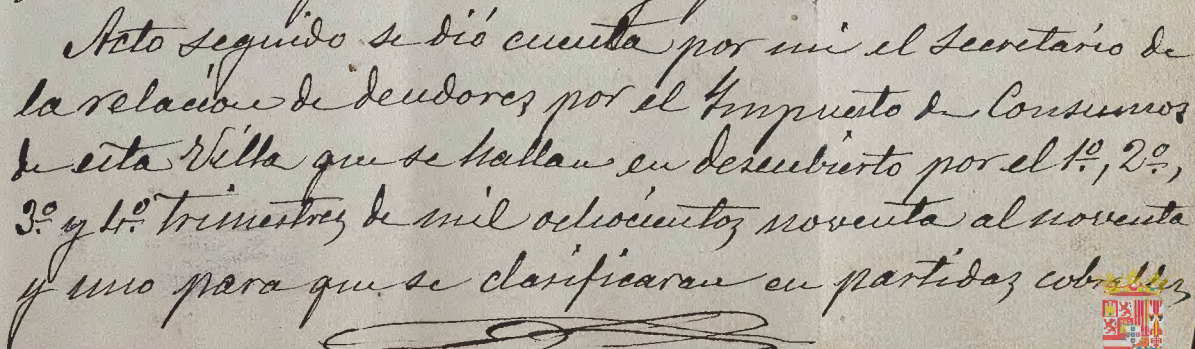 Acto seguido se dió cuenta por mi el Secretario de
la relacion de deudores por el Impuesto de Consumos
de esta Villa que se hallan en descubierto por el 1º, 2º,
3º y 4º trimestres de mil ochocientos noventa al noventa
y uno para que se clasificaran en partidas cobrables